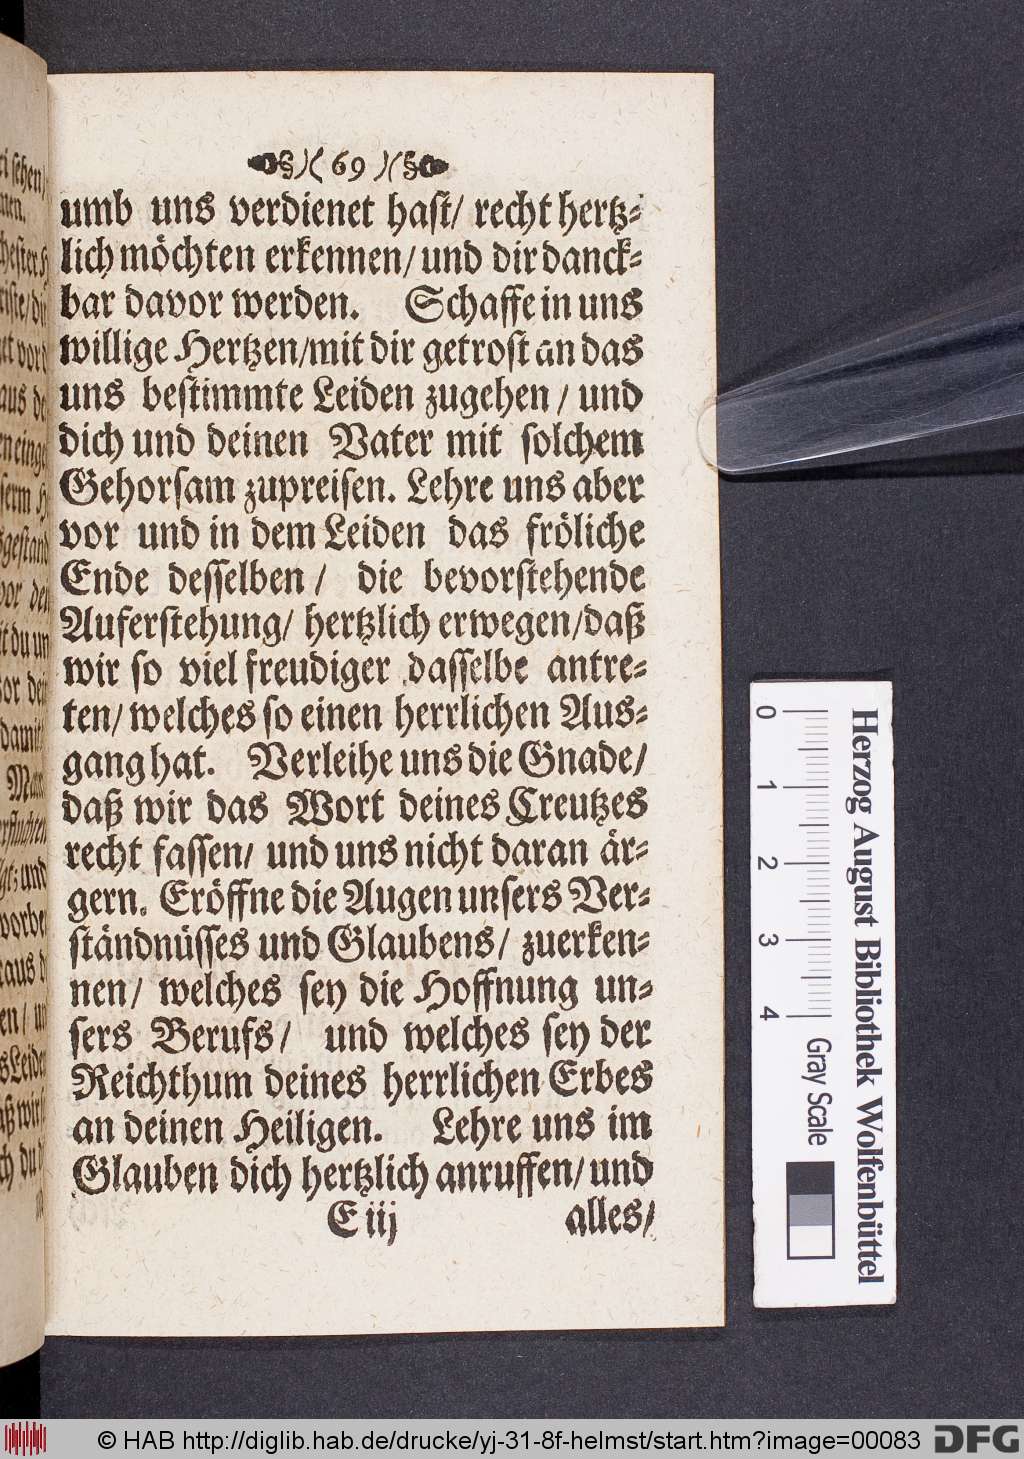 §)( 69 )(§
umb uns verdienet hast/ recht hertz=
lich möchten erkennen/ und dir danck=
bar davor werden. Schaffe in uns
willige Hertzen/mit dir getrost an das
uns bestimmte Leiden zugehen / und
dich und deinen Vater mit solchem
Gehorsam zupreisen. Lehre uns aber
vor und in dem Leiden das fröliche
Ende desselben / die bevorstehende
Auferstehung/ hertzlich erwegen/daß
wir so viel freudiger dasselbe antre=
ten/ welches so einen herrlichen Aus=
gang hat. Verleihe uns die Gnade/
daß wir das Wort deines Creutzes
recht fassen/ und uns nicht daran är=
gern. Eröffne die Augen unsers Ver=
ständnüsses und Glaubens/ zuerken=
nen/ welches sey die Hoffnung un=
sers Berufs/ und welches sey der
Reichthum deines herrlichen Erbes
an deinen Heiligen. Lehre uns im
Glauben dich hertzlich anruffen/ und
E iij alles/
Herzog August Bibliothek Wolfenbüttel
0 1 2 3 4 Gray Scale
© HAB http://diglib.hab.de/drucke/yj-31-8f-helmst/start.htm?image=00083 DFG